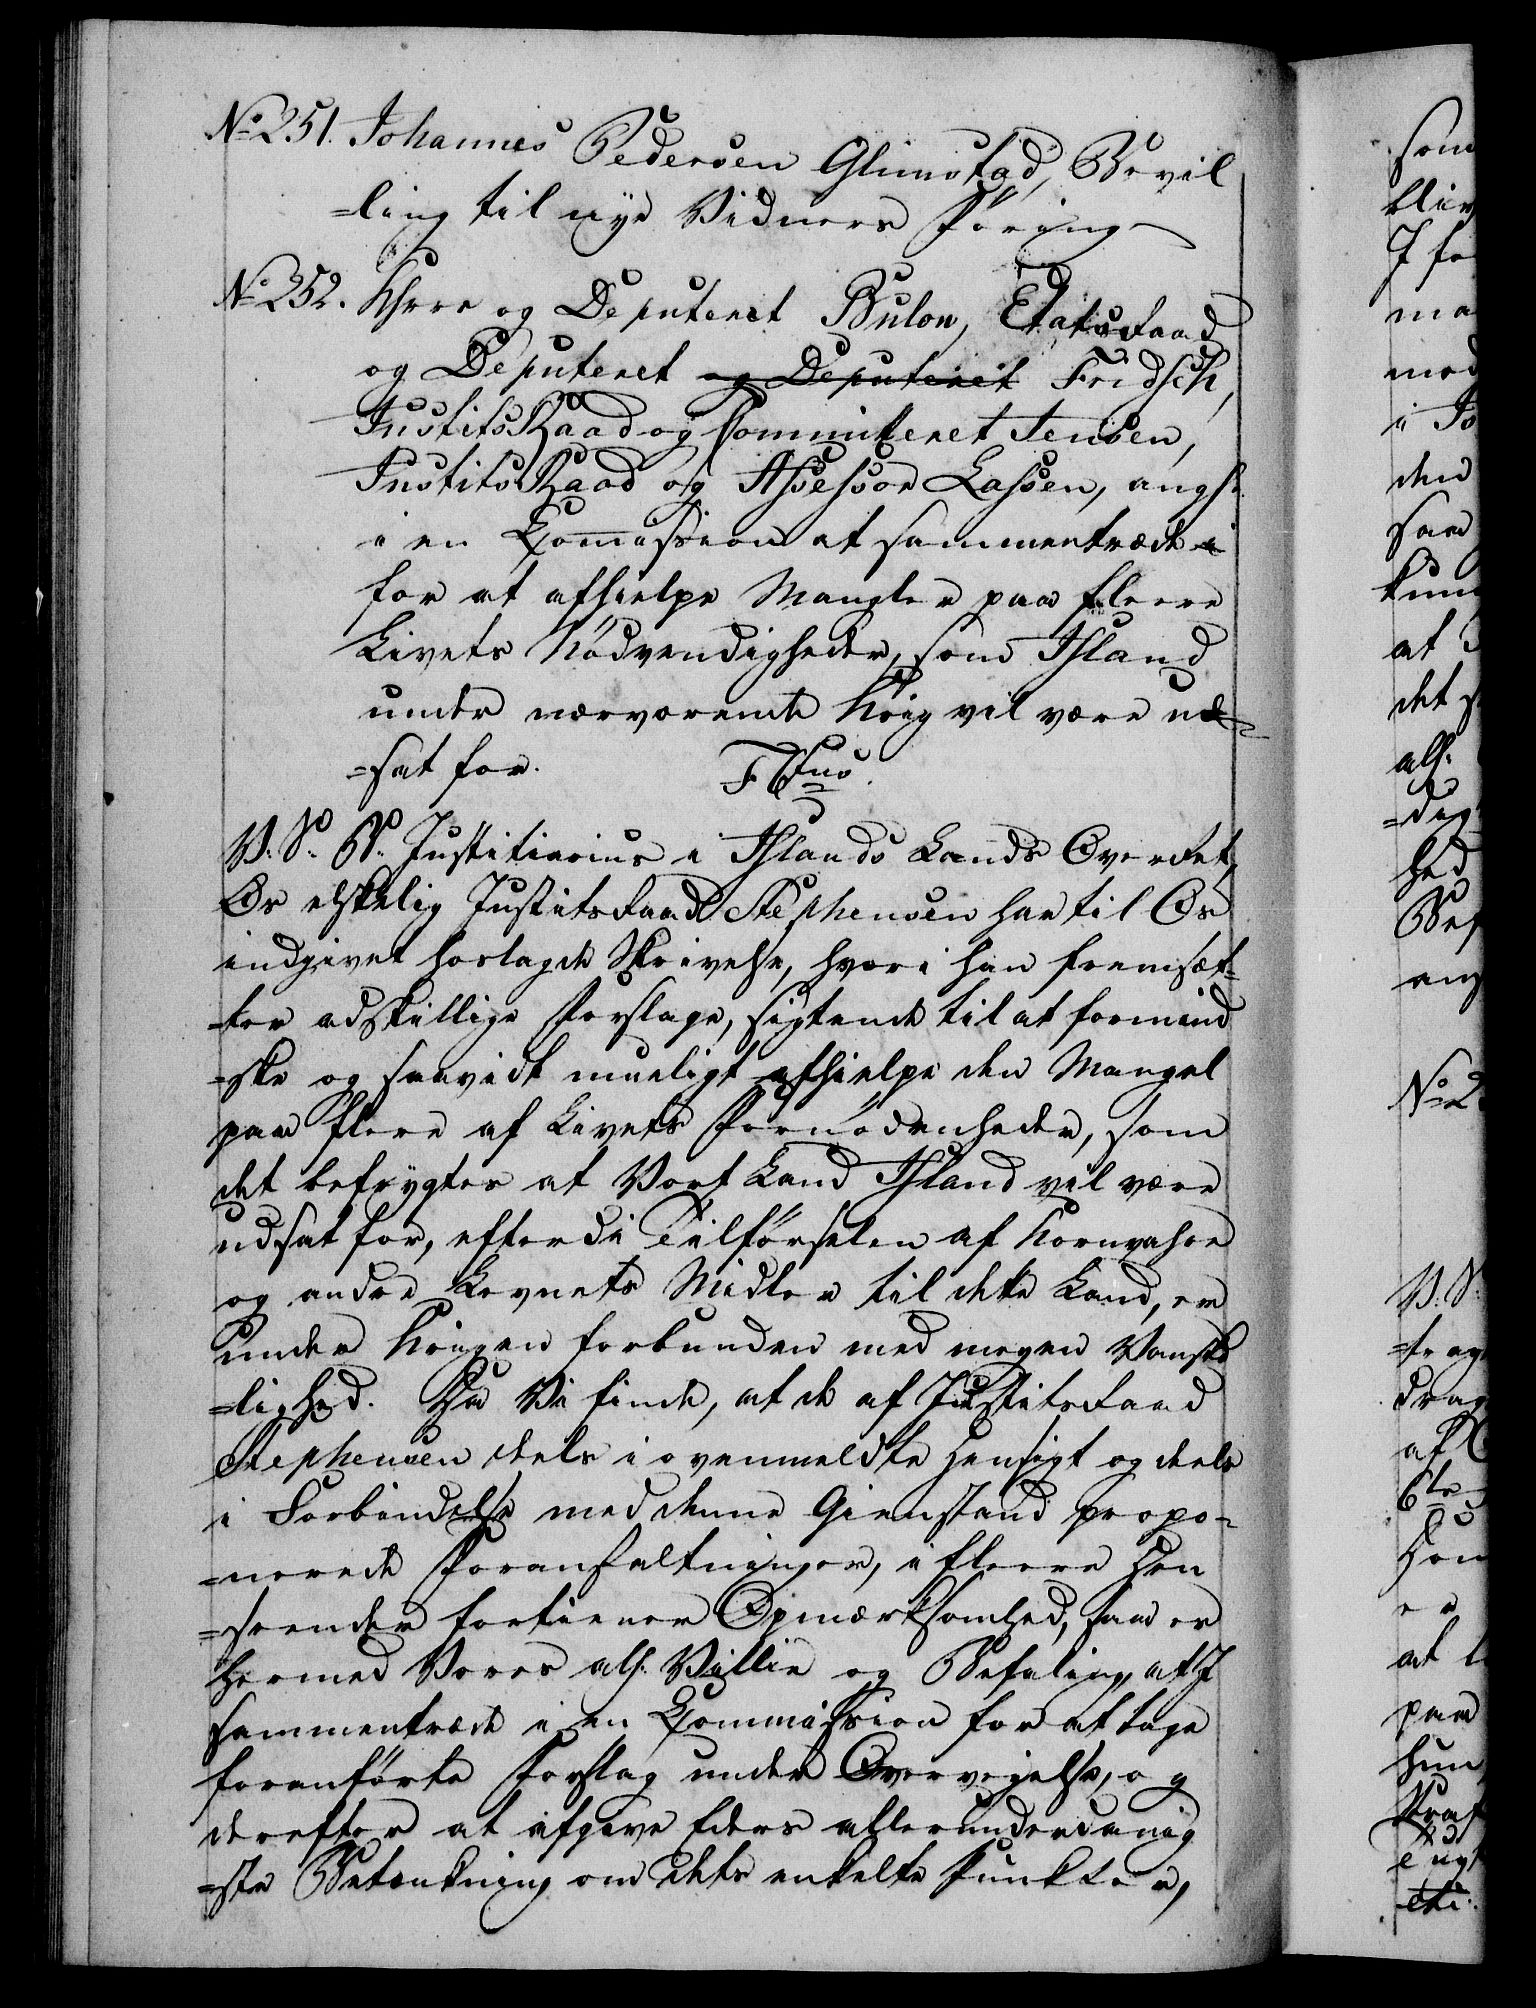 No 251. Johannes Pedersen Glimstad, Bevil
=ling til nye Vidners Föring
No 252. Khrre og Deputeret Bulow, Etatsraad
og Deputeret og Deputeret Fridsch,
JustitsRaad og Committeret Jensen,
JustitsRaad og Assessor Lassen, ang:
i en Commission at sammentræde i
for at afhielpe Mangler paa fleere
Livets Nödvendigheder, som Island
under nærværende Krig vil være ud=
=sat for.
V. S. G. Justitiarius i Islands Lands Overret,
Os elskelig Justitsraad Stephensen har til Os
indgivet hoslagde Skrivelse, hvori han fremsæt=
=ter adskillige Forslage, sigtende til at formind
=ske og saavidt mueligt afhielpe den Mangel
paa flere af Livets Fornödenheder, som
det befrygtes at Vort Land Island vil være
udsat for, efterdi Tilförselen af Kornvahre
og andre Levnets Midler til dette Land, er
under Krigen forbunden med megen Vanske
=lighed. Da Vi finde, at de af Justitsraad
Stephensen dels i ovenmeldte Hensigt og deels
i Forbindelse med denne Gienstand propo=
=nerede Foranstaltninger, i fleere Hen
=seender fortiener Opmærksomhed, saa er
hermed Vores all. Villie og Befaling, at I
sammentræde i en Commission for at tage
foranförte Forslag under Overveielse, og
derefter at afgive Eders allerunderdanig
=ste Betænkning om dets enkelte Punkter,